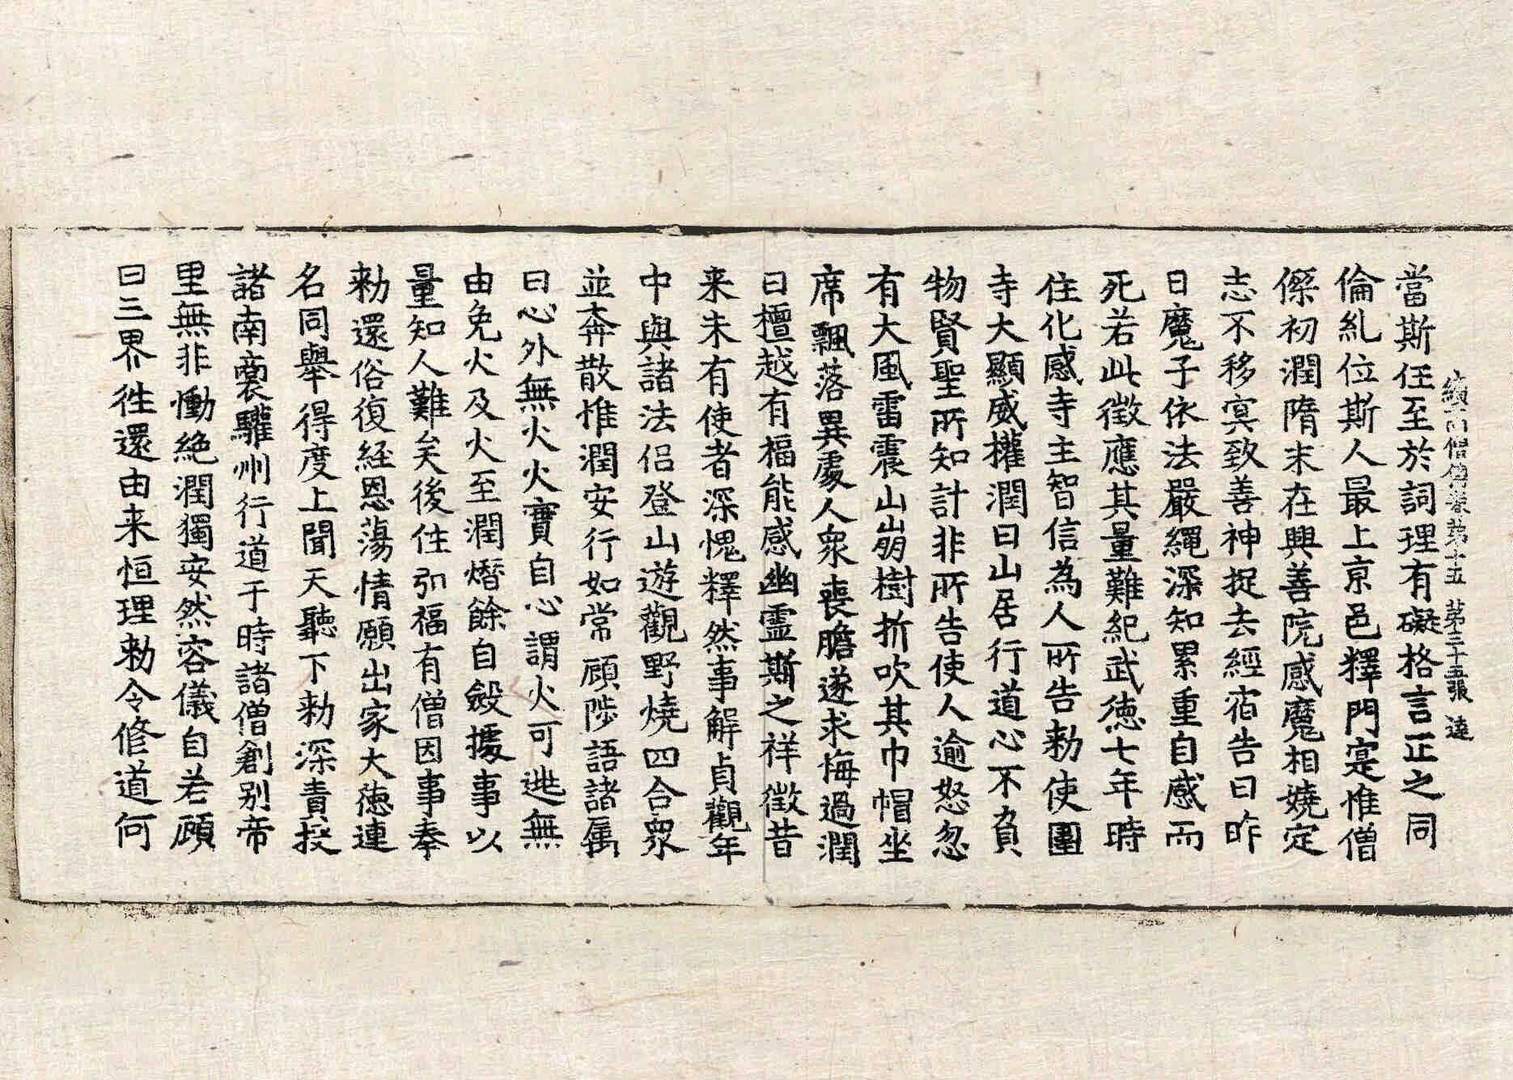 續高僧傳卷第十五 第三十五張 遠
當斯任至於詞理有礙格言正之同
倫糺位斯人最上京邑釋門寔惟僧
傑初潤隋末在興善院感魔相嬈定
志不移冥致善神捉去經宿告曰昨
日魔子依法嚴繩深知累重自感而
死若此徵應其量難紀武德七年時
住化感寺主智信為人所告勑使圍
寺大顯威權潤曰山居行道心不負
物賢聖所知計非所告使人逾怒忽
有大風雷震山崩樹折吹其巾帽坐
席飄落異處人衆喪膽遂求悔過潤
曰檀越有福能感幽靈斯之祥徵昔
来未有使者深愧釋然事解貞觀年
中與諸法侶登山遊觀野燒四合衆
並奔散惟潤安行如常顧陟語諸属
曰心外無火火實自心謂火可逃無
由免火及火至潤熸餘自斂據事以
量知人難矣後住弘福有僧因事奉
勑還俗復経恩蕩情願出家大德連
名同舉得度上聞天聽下勑深責投
諸南裔驩州行道于時諸僧創別帝
里無非慟絶潤獨安然容儀自若顧
曰三界徃還由来恒理勑令修道何